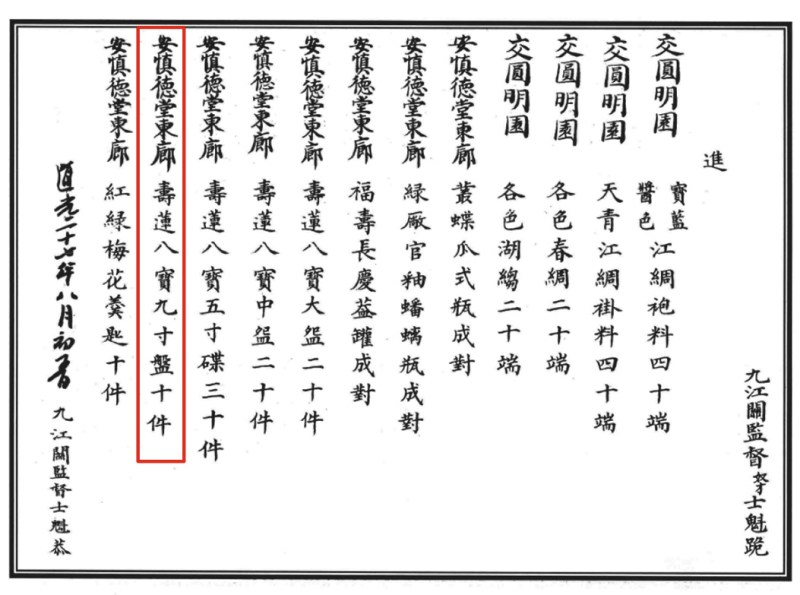 九江關監督奴才士魁跪
進
交圓明園 寶藍醬色江綢袍料四十端
交圓明園 天青江綢褂料四十端
交圓明園 各色春綢二十端
交圓明園 各色湖縐二十端
安慎德堂東廊 叢蝶瓜式瓶成對
安慎德堂東廊 綠廠官釉蟠螭瓶成對
安慎德堂東廊 福壽長慶葢罐成對
安慎德堂東廊 壽蓮八寶大盌二十件
安慎德堂東廊 壽蓮八寶中盌二十件
安慎德堂東廊 壽蓮八寶五寸碟三十件
安慎德堂東廊 壽蓮八寶九寸盤十件
安慎德堂東廊 紅綠梅花羹匙十件
道光二十七年八月初 九江關監督士魁恭